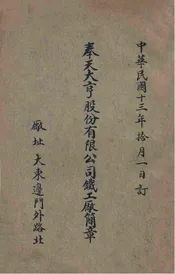 中華民國十三年拾月一日訂
奉天大亨股份有限公司鐵工廠簡章
廠址大東邊門外路北